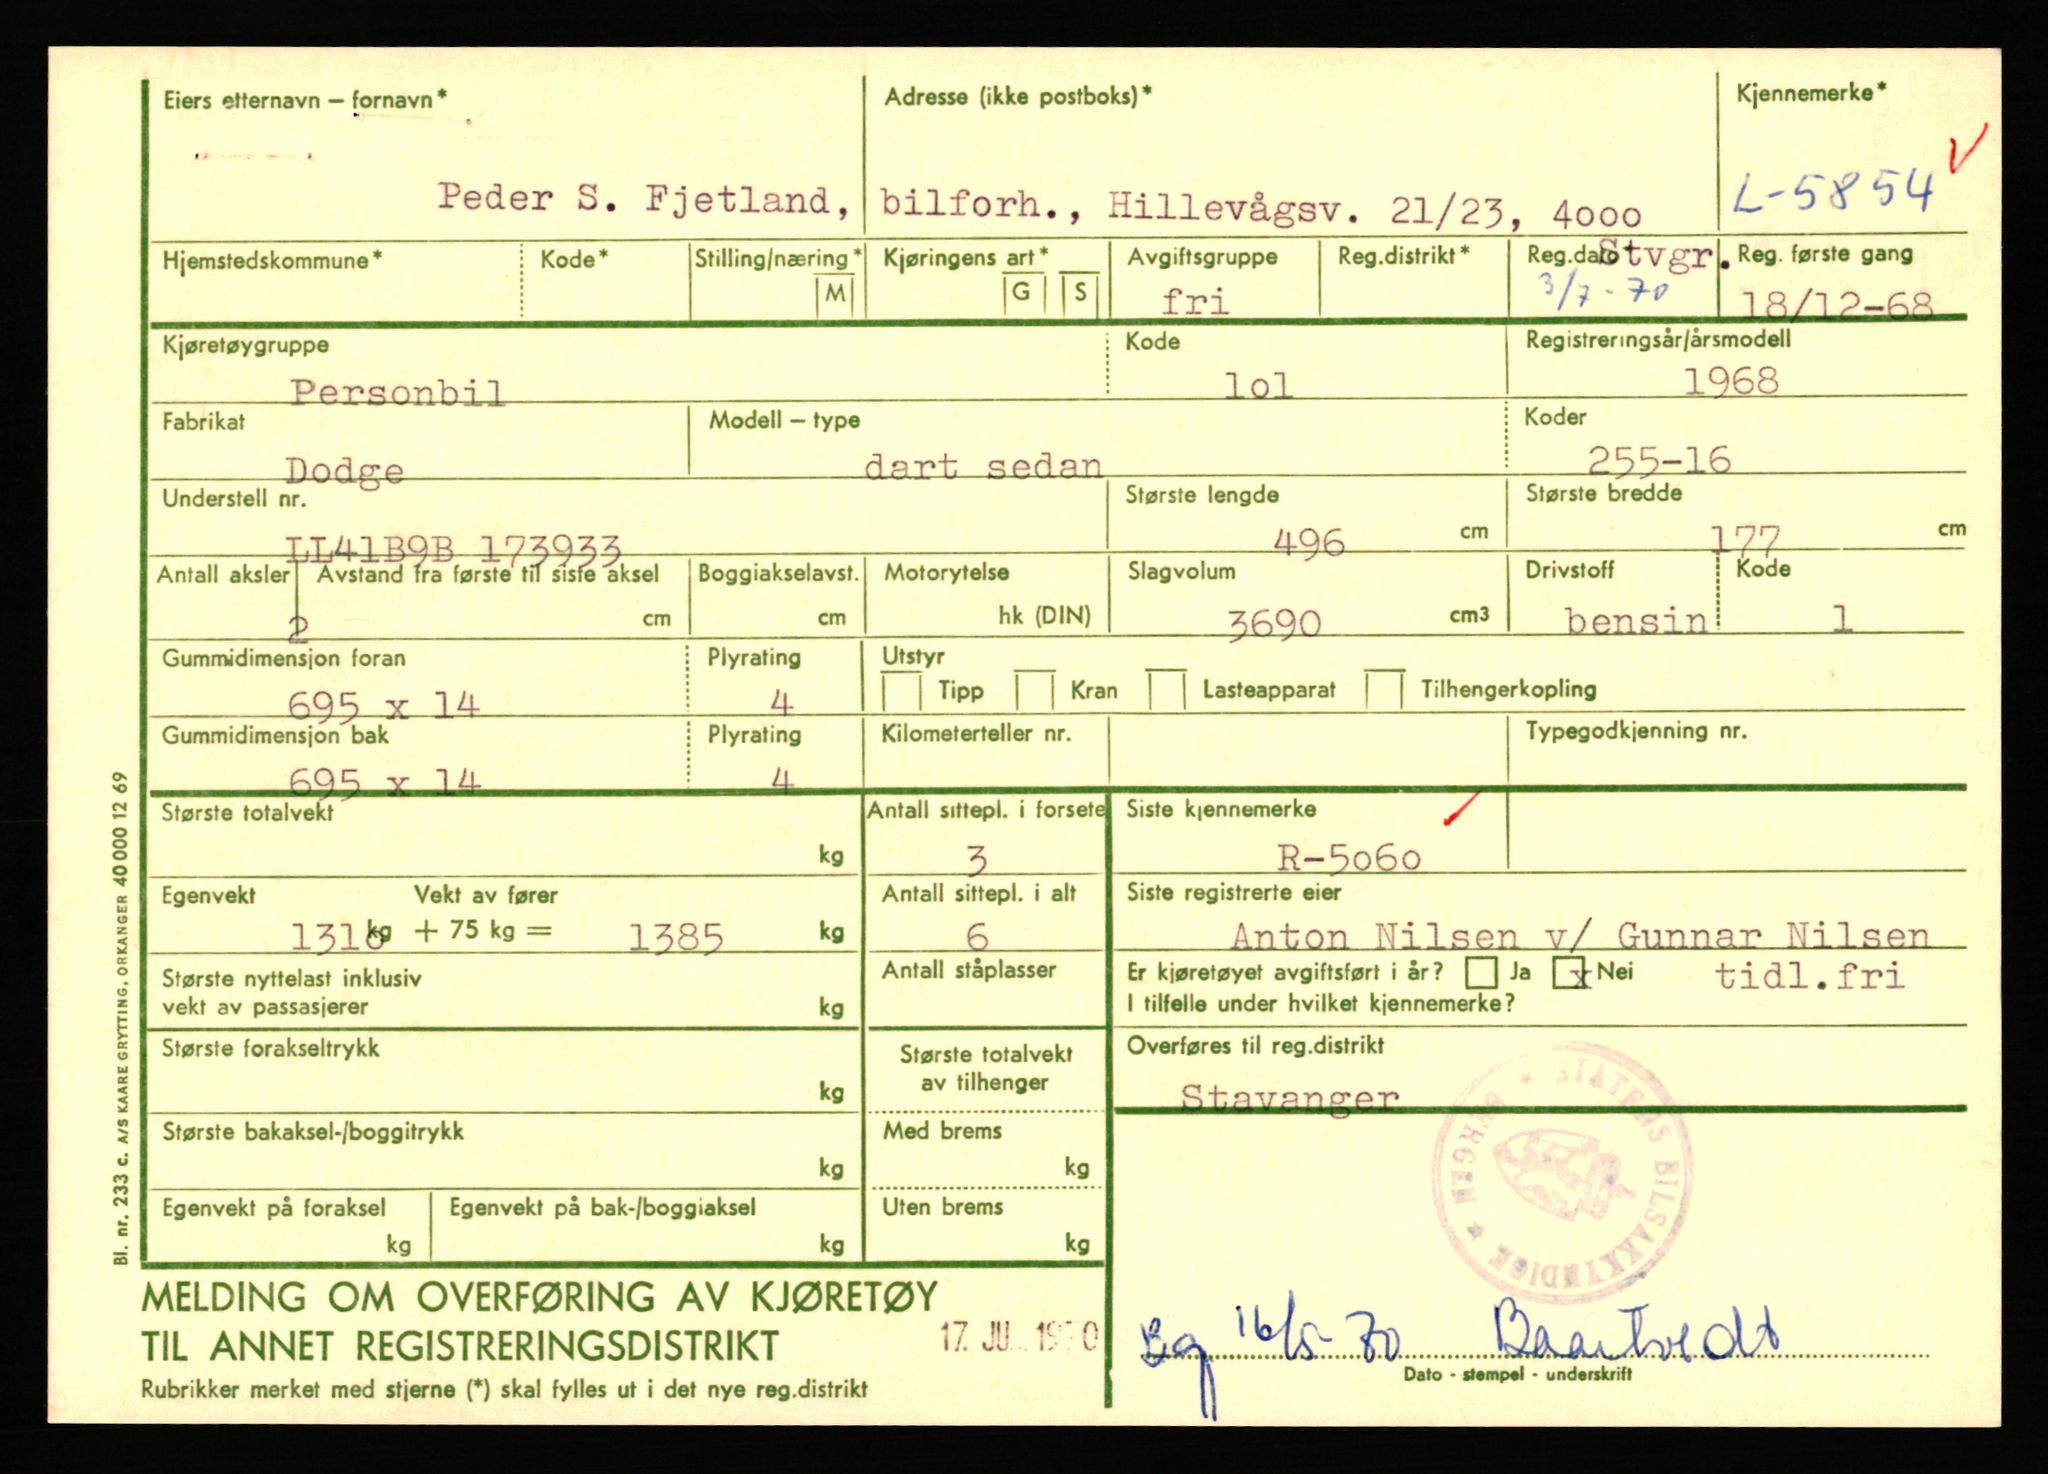 Eiers etternavn – fornavn*
Adresse (ikke postboks)*
Kjennemerke*
Peder S. Fjetland, bilforh., Hillevågsv. 21/23, 4ooo
Stvgr.
L-5854
Hjemstedskommune*
Kode*
Stilling/næring*
M
Kjøringens art*
G S
Avgiftsgruppe
fri
Reg.distrikt*
Reg.dato
3/7-70
Reg. første gang
18/12-68
Kjøretøygruppe
Personbil
Kode
lol
Registreringsår/årsmodell
1968
Fabrikat
Dodge
Modell – type
dart sedan
Koder
255-16
Understell nr.
LL41B9B 173933
Største lengde
496 cm
Største bredde
177 cm
Antall aksler
2
Avstand fra første til siste aksel
cm
Boggiakselavst.
cm
Motorytelse
hk (DIN)
Slagvolum
3690 cm3
Drivstoff
bensin
Kode
1
Gummidimensjon foran
695 x 14
Plyrating
4
Utstyr
Tipp Kran Lasteapparat Tilhengerkopling
Gummidimensjon bak
695 x 14
Plyrating
4
Kilometerteller nr.
Typegodkjenning nr.
Største totalvekt
kg
Antall sittepl. i forsete
3
Siste kjennemerke
R-5o6o
Egenvekt Vekt av fører
1310 kg + 75 kg = 1385 kg
Antall sittepl. i alt
6
Siste registrerte eier
Anton Nilsen v/ Gunnar Nilsen
Største nyttelast inklusiv
vekt av passasjerer kg
Antall ståplasser
Er kjøretøyet avgiftsført i år? Ja x Nei tidl.fri
I tilfelle under hvilket kjennemerke?
Største forakseltrykk
kg
Største totalvekt
av tilhenger
Overføres til reg.distrikt
Stavanger
Største bakaksel-/boggitrykk
kg
Med brems
kg
Egenvekt på foraksel
kg
Egenvekt på bak-/boggiaksel
kg
Uten brems
kg
STATENS BILSAKKYNDIGE * BERGEN *
MELDING OM OVERFØRING AV KJØRETØY
TIL ANNET REGISTRERINGSDISTRIKT
Rubrikker merket med stjerne (*) skal fylles ut i det nye reg.distrikt
17. JU 1970
Bg 16/5-70 Baartvedt
Dato - stempel - underskrift
Bl. nr. 233 c. A/S KAARE GRYTTING, ORKANGER 40 000 12 69